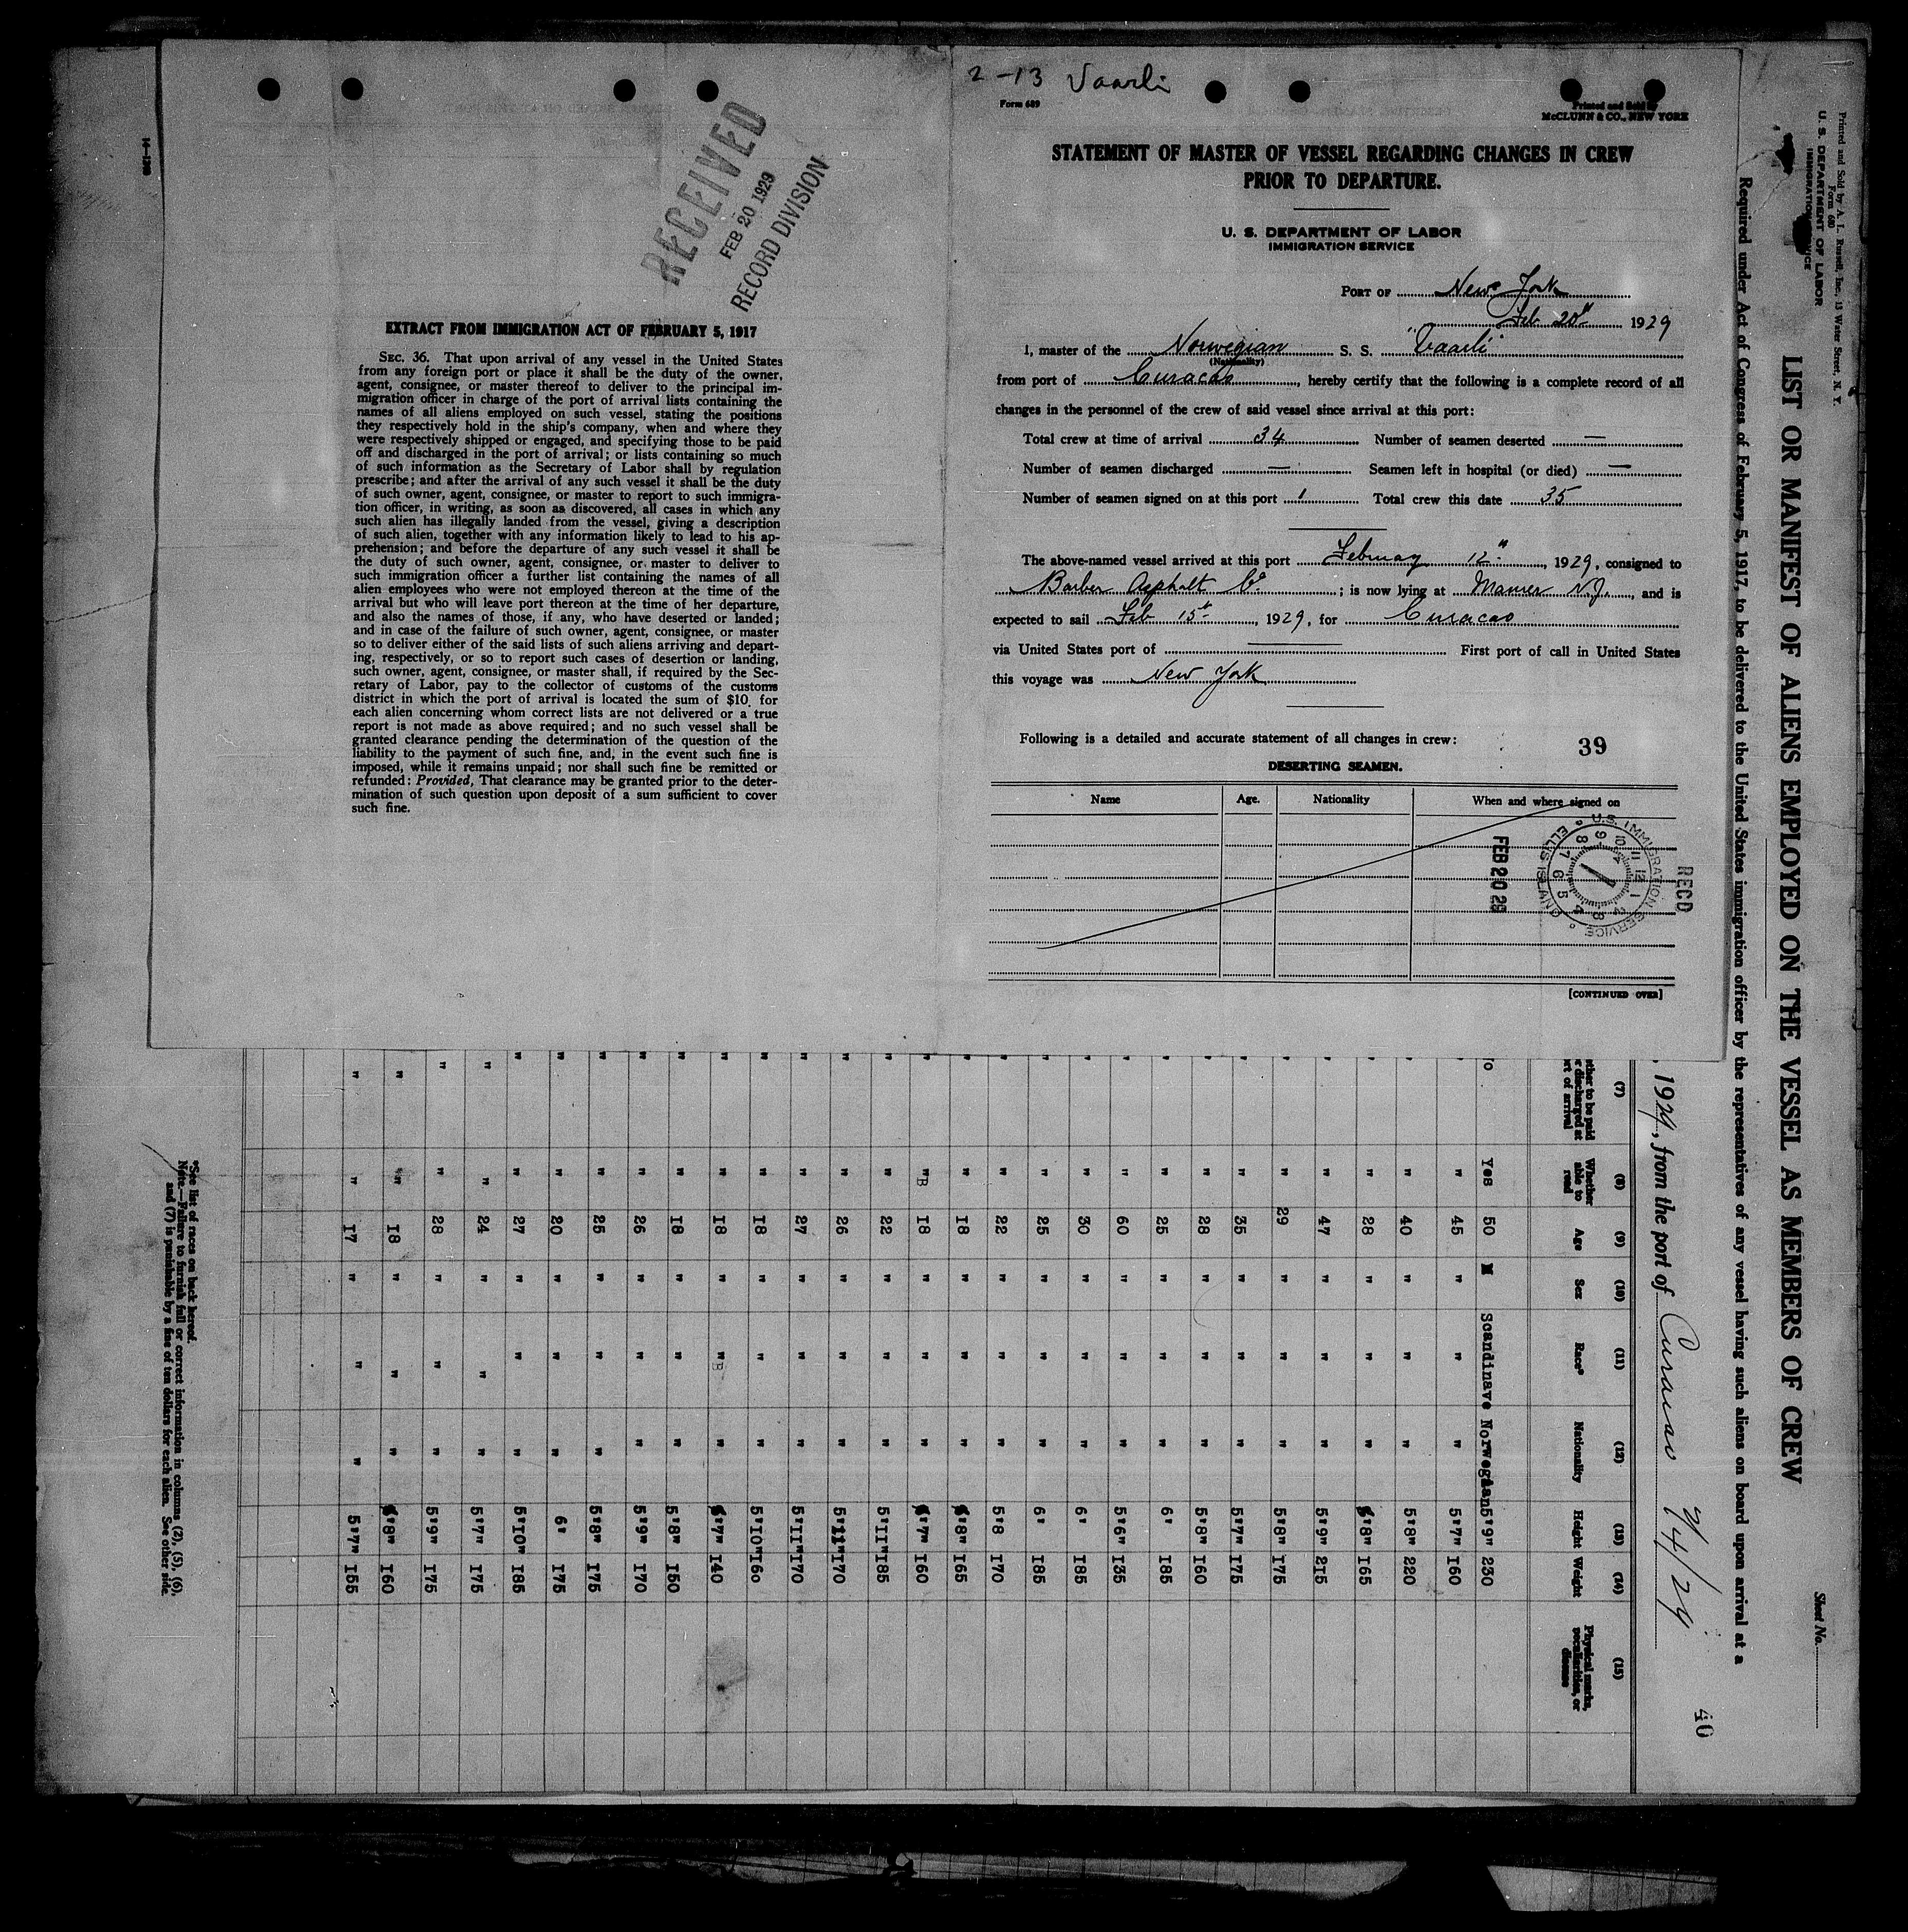 2 - 13 Vaarli
Form 689
Printed and Sold by
McCLUNN & CO., NEW YORK
STATEMENT OF MASTER OF VESSEL REGARDING CHANGES IN CREW
PRIOR TO DEPARTURE.
U. S. DEPARTMENT OF LABOR
IMMIGRATION SERVICE
PORT OF New York
Feb 20" 1929
I, master of the Norwegian S. S. "Vaarli"
(Nationality)
from port of Curacao, hereby certify that the following is a complete record of all
changes in the personnel of the crew of said vessel since arrival at this port:
Total crew at time of arrival 34 Number of seamen deserted —
Number of seamen discharged — Seamen left in hospital (or died) —
Number of seamen signed on at this port 1 Total crew this date 35
The above-named vessel arrived at this port February 12", 1929, consigned to
Barber Asphalt Co ; is now lying at Maurer N.J., and is
expected to sail Feb 15th, 1929, for Curacao
via United States port of — First port of call in United States
this voyage was New York
Following is a detailed and accurate statement of all changes in crew:
39
DESERTING SEAMEN.
Name Age. Nationality When and where signed on
RECD
U.S. IMMIGRATION SERVICE
ELLIS ISLAND
FEB 20 29
[CONTINUED OVER]
14-1240
RECEIVED
FEB 20 1929
RECORD DIVISION
EXTRACT FROM IMMIGRATION ACT OF FEBRUARY 5, 1917
SEC. 36. That upon arrival of any vessel in the United States
from any foreign port or place it shall be the duty of the owner,
agent, consignee, or master thereof to deliver to the principal im-
migration officer in charge of the port of arrival lists containing the
names of all aliens employed on such vessel, stating the positions
they respectively hold in the ship's company, when and where they
were respectively shipped or engaged, and specifying those to be paid
off and discharged in the port of arrival; or lists containing so much
of such information as the Secretary of Labor shall by regulation
prescribe; and after the arrival of any such vessel it shall be the duty
of such owner, agent, consignee, or master to report to such immigra-
tion officer, in writing, as soon as discovered, all cases in which any
such alien has illegally landed from the vessel, giving a description
of such alien, together with any information likely to lead to his ap-
prehension; and before the departure of any such vessel it shall be
the duty of such owner, agent, consignee, or master to deliver to
such immigration officer a further list containing the names of all
alien employees who were not employed thereon at the time of the
arrival but who will leave port thereon at the time of her departure,
and also the names of those, if any, who have deserted or landed;
and in case of the failure of such owner, agent, consignee, or master
so to deliver either of the said lists of such aliens arriving and depart-
ing, respectively, or so to report such cases of desertion or landing,
such owner, agent, consignee, or master shall, if required by the Sec-
retary of Labor, pay to the collector of customs of the customs
district in which the port of arrival is located the sum of $10. for
each alien concerning whom correct lists are not delivered or a true
report is not made as above required; and no such vessel shall be
granted clearance pending the determination of the question of the
liability to the payment of such fine, and, in the event such fine is
imposed, while it remains unpaid; nor shall such fine be remitted or
refunded: Provided, That clearance may be granted prior to the deter-
mination of such question upon deposit of a sum sufficient to cover
such fine.
Printed and Sold by A. L. Russell, Inc., 13 Water Street, N. Y.
Form 680
U. S. DEPARTMENT OF LABOR
IMMIGRATION SERVICE
Sheet No.
LIST OR MANIFEST OF ALIENS EMPLOYED ON THE VESSEL AS MEMBERS OF CREW
Required under Act of Congress of February 5, 1917, to be delivered to the United States immigration officer by the representatives of any vessel having such aliens on board upon arrival at a
40
, 1929, from the port of Curacao 2/4/29
(7) (8) (9) (10) (11) (12) (13) (14) (15)
ether to be paid
r discharged at
rt of arrival
Whether
able to
read
Age
Sex
Race*
Nationality
Height
Weight
Physical marks,
peculiarities, or
disease
o Yes 50 M Scandinave Norwegian 5'9" 230
" " 45 " " " 5'7" 160
" " 40 " " " 5'8" 220
" " 28 " " " 5'8" 165
" " 47 " " " 5'9" 215
" " 29 " " " 5'8" 175
" " 35 " " " 5'7" 175
" " 28 " " " 5'8" 160
" " 25 " " " 6' 185
" " 60 " " " 5'6" 135
" " 30 " " " 6' 185
" " 25 " " " 6' 185
" " 22 " " " 5'8 170
" " 18 " " " 5'8" 165
" " 18 " " " 5'7" 160
" " 22 " " " 5'11" 185
" " 26 " " " 5'11" 170
" " 27 " " " 5'11" 170
" " 18 " " " 5'10" 160
" " 18 " " " 5'7" 140
" " 18 " " " 5'8" 150
" " 26 " " " 5'9" 170
" " 25 " " " 5'8" 175
" " 20 " " " 6' 175
" " 27 " " " 5'10" 185
" " 24 " " " 5'7" 175
" " 28 " " " 5'9" 175
" " 18 " " " 5'8" 160
" " 17 " " " 5'7" 155
*See list of races on back hereof.
Note.—Failure to furnish full or correct information in columns (2), (5), (6),
and (7) is punishable by a fine of ten dollars for each alien. See other side.